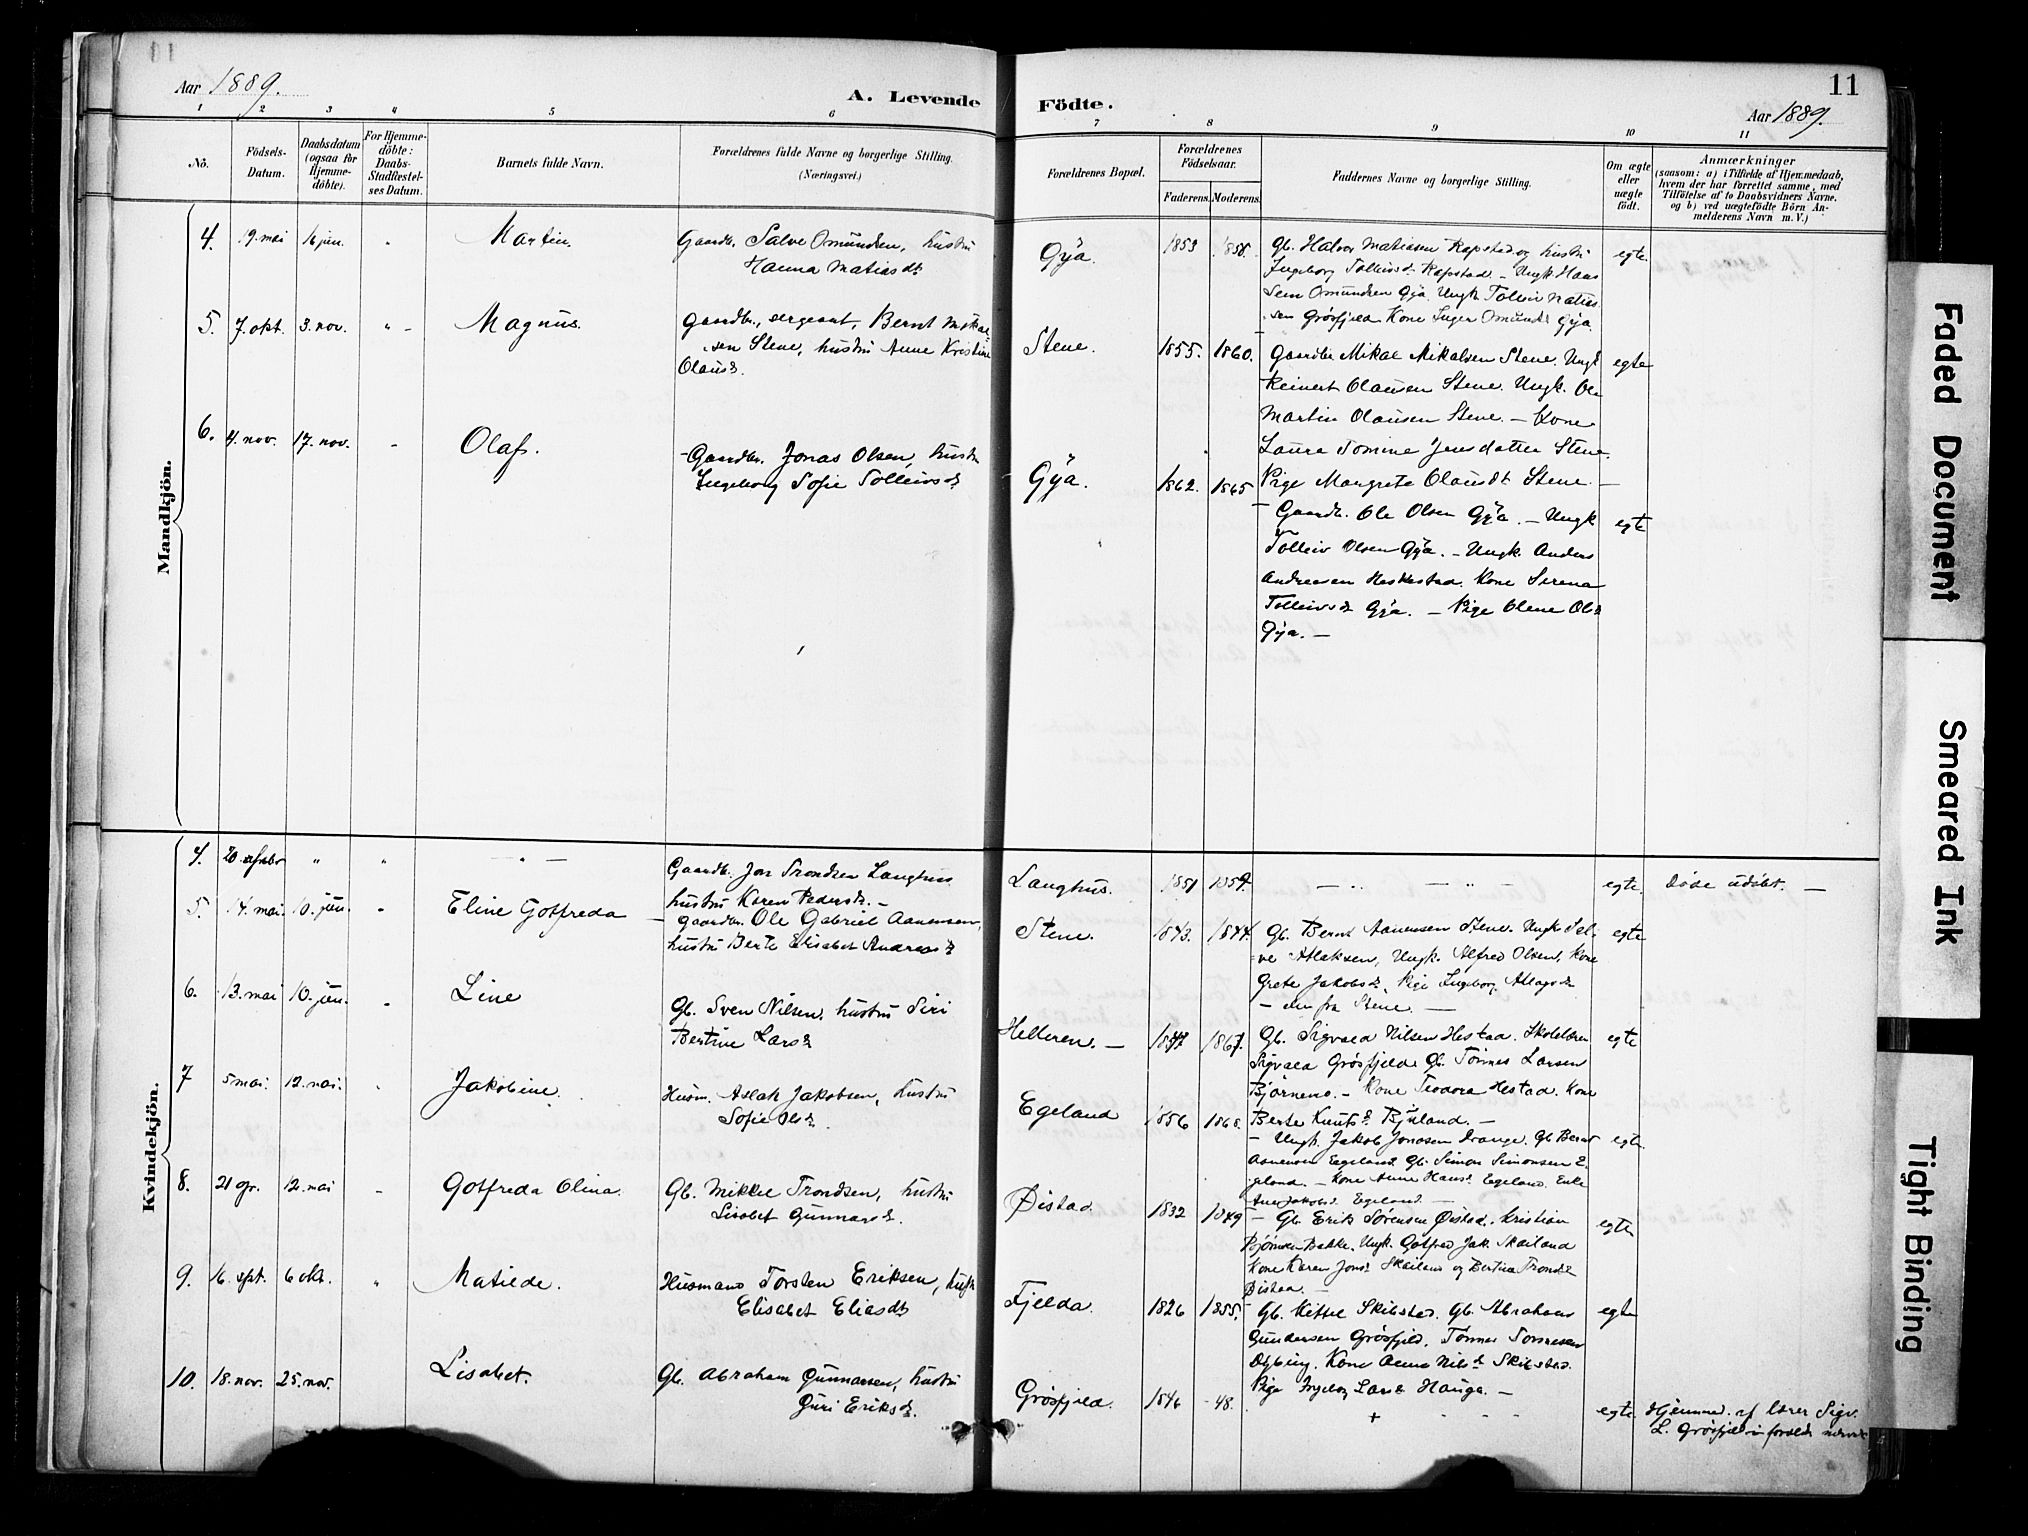 11
Aar 1889.
A. Levende Födte.
Aar 1889.
1 2 3 4 5 6 7 8 9 10 11
No.
Födsels-
Datum.
Daabsdatum
(ogsaa för
Hjemme-
döbte).
For Hjemme-
döbte:
Daabs-
Stadfæstel-
ses Datum.
Barnets fulde Navn.
Forældrenes fulde Navne og borgerlige Stilling.
(Næringsvei.)
Forældrenes Bopæl.
Forældrenes
Födselsaar.
Faderens. Moderens.
Faddernes Navne og borgerlige Stilling.
Om ægte
eller
uægte
födt.
Anmærkninger
(saasom: a) i Tilfælde af Hjemmedaab,
hvem der har forrettet samme, med
Tilföielse af to Daabsvidners Navne.
og b) ved uægtefödte Börn An-
melderens Navn m. V.)
Mandkjön.
4. 19. mai 16 jun. " Martin.
Gaardb. Salve Omundsen, hustru
Hanna Matiasdt
Gya. 1853
Gb. Halvor Matiasen Rapstad og hustru
Ingeborg Tolleivsdt Rapstad. - Ungk Hans
Sem Omundsen Gya. Ungk Tolleiv Matias
sen Grösfjeld. Kone Inger Omundsd. Gya.
egte.
5. 7. okt. 3. nov. " Magnus.
Gaardbr., sergeant, Bernt Mikal-
sen Stene, hustru Anne Kristine
Olausd.
Stene. 1855. 1860.
Gaardbr Mikal Mikalsen Stene. Ungk
Reinert Olausen Stene. Ungk. Ole
Martin Olausen Stene. - Kone
Laura Tomine Jensdatter Stene.
Pige Margrete Olausdt Stene. -
egte
6. 4. nov. 17. nov. - Olaf.
- Gaardbr. Jonas Olsen, hustru
Ingeborg Sofie Tolleivsd.
Gya. 1862. 1865
- Gaardb. Ole Olsen Gya. - Ungk
Tolleiv Olsen Gya. - Ungk. Anders
Andreasen Heskestad. Kone Serena
Tolleivsd Gya. - Pige Olene Olsd
Gya. -
egte
Kvindekjön.
4. " " - " -
Gaardb. Jon Trondsen Langhus
hustru Karen Pedersd. -
Langhus. 1851 1859. - " - - " -
egte. Döde udöbt. -
5. 14. mai. 10. jun. " Eline Gotfreda
- Gaardbr. Ole Gabriel Aanensen,
hustru Berte Elisabet Andreasd
Stene. 1843. 1844.
Gb. Bernt Aanensen Stene. Ungk Sal-
ve Atlaksen, Ungk. Alfred Olsen, Kone
Grete Jakobsd, Pige Ingeborg
- alle fra Stene. -
egte
6. 13. mai 10. jun. " Line
Gb. Sven Nilsen, hustru Siri
Bertine Larsd
Helleren. - 1867.
Gb. Sigvald Nilsen Hestad. Skolelærer
Sigvald Grösfjeld. Gb. Tönnes Larsen
- Kone Teodora Hestad. Kone
Berte Knutsd. -
egte
7 5 mai. 12. mai. " Jakobine.
Husm. Aslak Jakobsen, hustru
Sofie Olsd.
Egeland 1856
- Ungk. Jakob Jonasen Drange. Gb Bernt
Aanensen Egeland. Gb. Simon Simonsen E-
geland. - Kone Anne Hansd. Egeland. Enke
Ane Jakobsd. Egeland. -
egte.
8. 21 12. mai - Gotfreda Olina.
Gb. Mikkel Trondsen, hustru
Lisabet Gunnarsd.
Øistad. 1832 1849
- Gb. Erik Sørensen Øistad. Kristian
Bakke. Ungk. Gotfred Jak. Skailand
Kone Karen Jonsd. Skailand og Bertina Trondsd
Øistad. -
egte
9. 16. sept. 6 okt. " Matilde.
Husmand Torsten Eriksen, hust.
Elisabet Eliasdt
Fjelda. 1826 1855.
Gb. Kittel Skibstad. Gb. Abraham
Gundersen Grösfjeld. Tönnes
Kone Anna Nilsd. Skibstad.
Pige Ingeb. Larsd Hauge. -
egte
10. 18. nov. 25. nov. Lisabet.
Gb. Abraham Gunnarsen, hustru
Guri Eriksd.
Grösfjeld. 1846 - 48. + - - -
egte. Hjemmed. af lærer Sigv.
L. Grösfjeld
Faded Document
Smeared Ink
Tight Binding